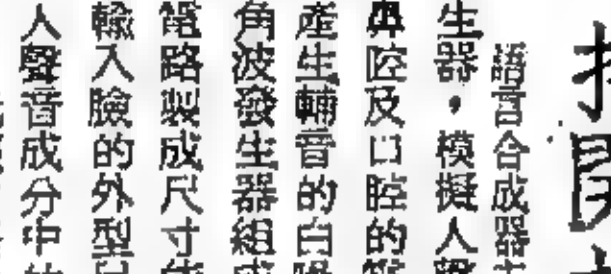 語言合成器
生器，模擬人聲
鼻腔及口腔的
產生輔音的白噪
角波發生器組成
電路製成尺寸
輸入臉的外型
人聲音成分中的